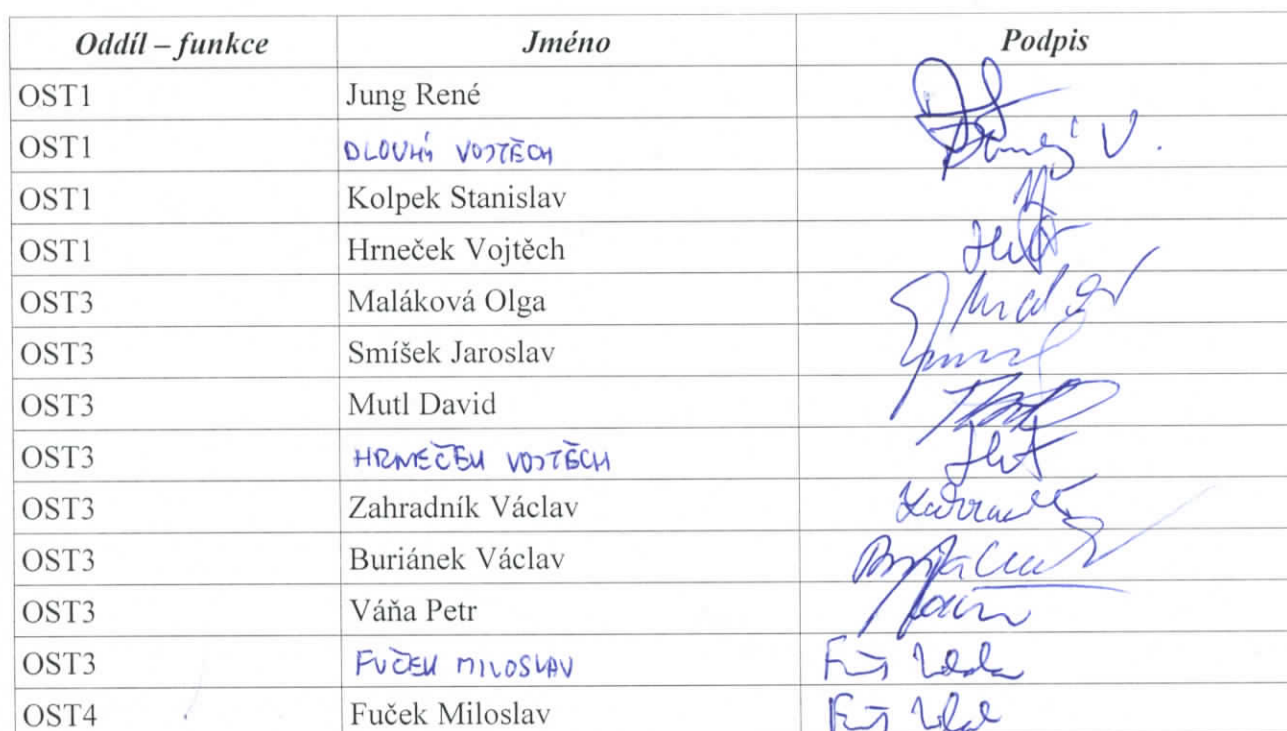 Oddíl – funkce Jméno Podpis
OST1 Jung René
OST1 DLOUHÝ VOJTĚCH
OST1 Kolpek Stanislav
OST1 Hrneček Vojtěch
OST3 Maláková Olga
OST3 Smíšek Jaroslav
OST3 Mutl David
OST3 HRNEČEK VOJTĚCH
OST3 Zahradník Václav
OST3 Buriánek Václav
OST3 Váňa Petr
OST3 FUČEK MILOSLAV
OST4 Fuček Miloslav